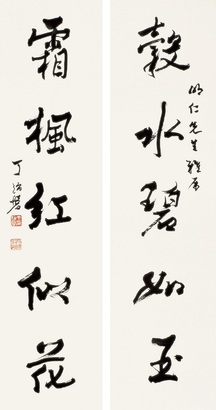 明仁先生雅屬
穀水碧如玉
霜楓紅似花
丁治磐